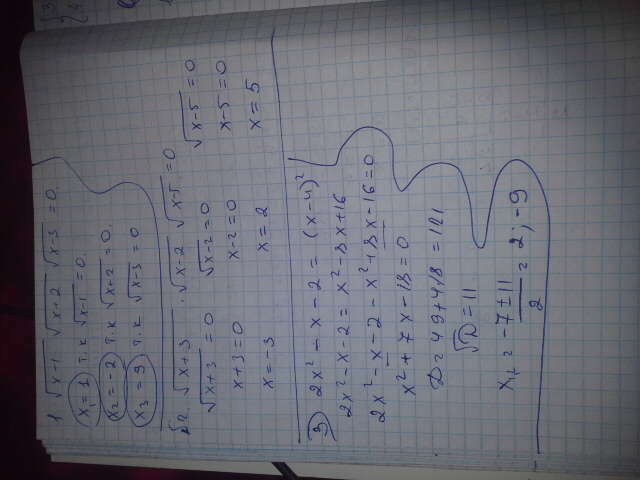 1 √x-1 √x+2 √x-3 = 0.
x₁=1 т.к √x-1 = 0.
x₂=-2 т.к √x+2 = 0.
x₃ = 9 т.к √x-3 = 0
√2. √x+3 · √x-2 √x-5 = 0
√x+3 = 0 √x-2 = 0 √x-5 = 0
x+3=0 x-2=0 x-5=0
x=-3 x=2 x=5
3) 2x² - x - 2 = (x-4)²
2x² - x - 2 = x² - 8x + 16
2x² - x - 2 - x² + 8x - 16 = 0
x² + 7x - 18 = 0
D = 49 + 4·18 = 121
√D = 11
x₁,₂ = -7±11/2 = 2; -9